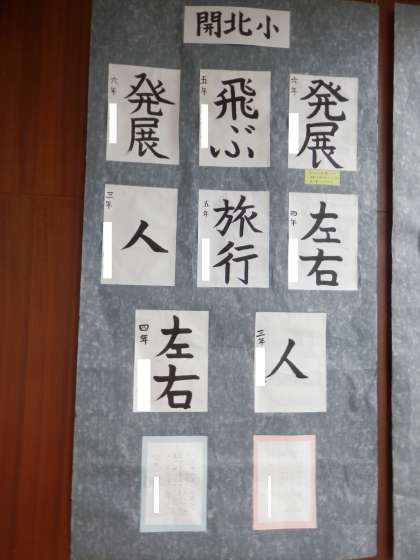 開北小
六年
発展
五年
飛ぶ
六年
発展
三年
人
五年
旅行
四年
左右
四年
左右
三年
人